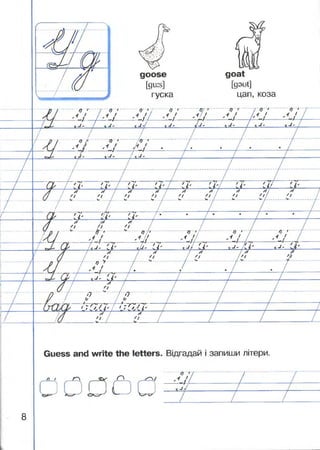 G g
goose goat
[gu:s] [gəut]
гуска цап, коза
G G G G G G G
G G G
g g g g g g g
g g g g
G g G g G g G g G g
G g G g
bag bag
Guess and write the letters. Відгадай і запиши літери.
G
8